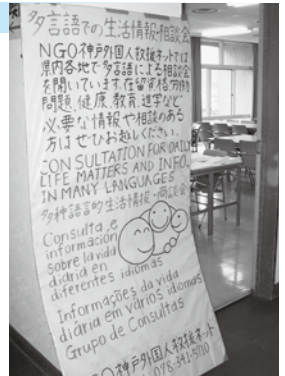 多言語での生活情報・相談会
NGO神戸外国人救援ネットでは
県内各地で多言語による相談会
を開いています。在留資格、労働
問題、健康、教育、進学など
必要な情報や相談のある
方はぜひお越しください。
CONSULTATION FOR DAILY
LIFE MATTERS AND INFO.
IN MANY LANGUAGES
多种語言的生活情报・商談会
Consulta e
información
sobre la vida
diaria en
diferentes idiomas
Informações da vida
diária em vários idiomas
Grupo de Consultas
NGO神戸外国人救援ネット